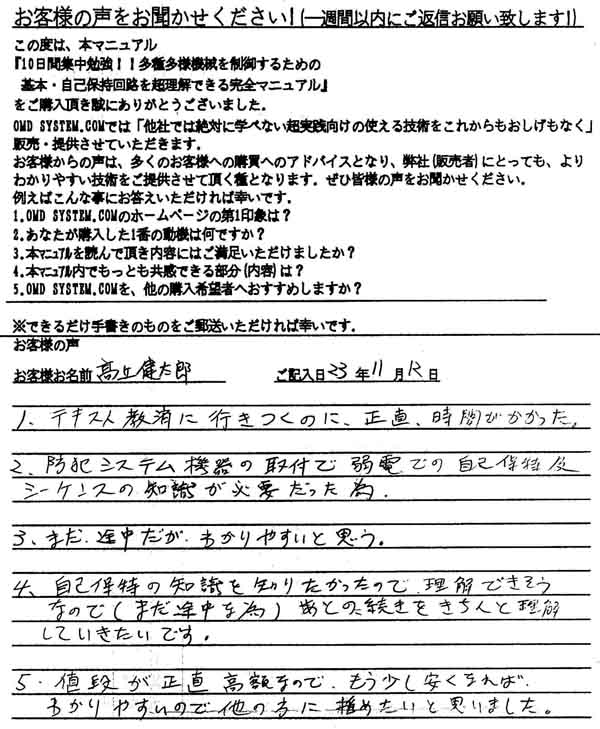 お客様の声をお聞かせください！(一週間以内にご返信お願い致します！)
この度は、本マニュアル
『10日間集中勉強！！多種多様機械を制御するための
基本・自己保持回路を超理解できる完全マニュアル』
をご購入頂き誠にありがとうございました。
OMD SYSTEM.COMでは「他社では絶対に学べない超実践向けの使える技術をこれからもおしげもなく」
販売・提供させていただきます。
お客様からの声は、多くのお客様への購買へのアドバイスとなり、弊社(販売者)にとっても、より
わかりやすい技術をご提供させて頂く種となります。ぜひ皆様の声をお聞かせください。
例えばこんな事にお答えいただければ幸いです。
1.OMD SYSTEM.COMのホームページの第1印象は？
2.あなたが購入した1番の動機は何ですか？
3.本マニュアルを読んで頂き内容にはご満足いただけましたか？
4.本マニュアル内でもっとも共感できる部分(内容)は？
5.OMD SYSTEM.COMを、他の購入希望者へおすすめしますか？
※できるだけ手書きのものをご郵送いただければ幸いです。
お客様の声
お客様お名前 高丘健太郎 ご記入日 23 年 11 月 12 日
1、テキスト教消に行きつくのに、正直、時間がかかった。
2、防犯システム機器の取付で弱電での自己保持及
シーケンスの知識が必要だった為.
3、まだ、途中だが、わかりやすいと思う。
4、自己保持の知識を知りたかったので、理解できそう
なので(まだ途中な為)あとの続きをきちんと理解
していきたいです。
5. 値段が正直高額なので、もう少し安くなれば、
わかりやすいので他の方に推めたいと思いました。